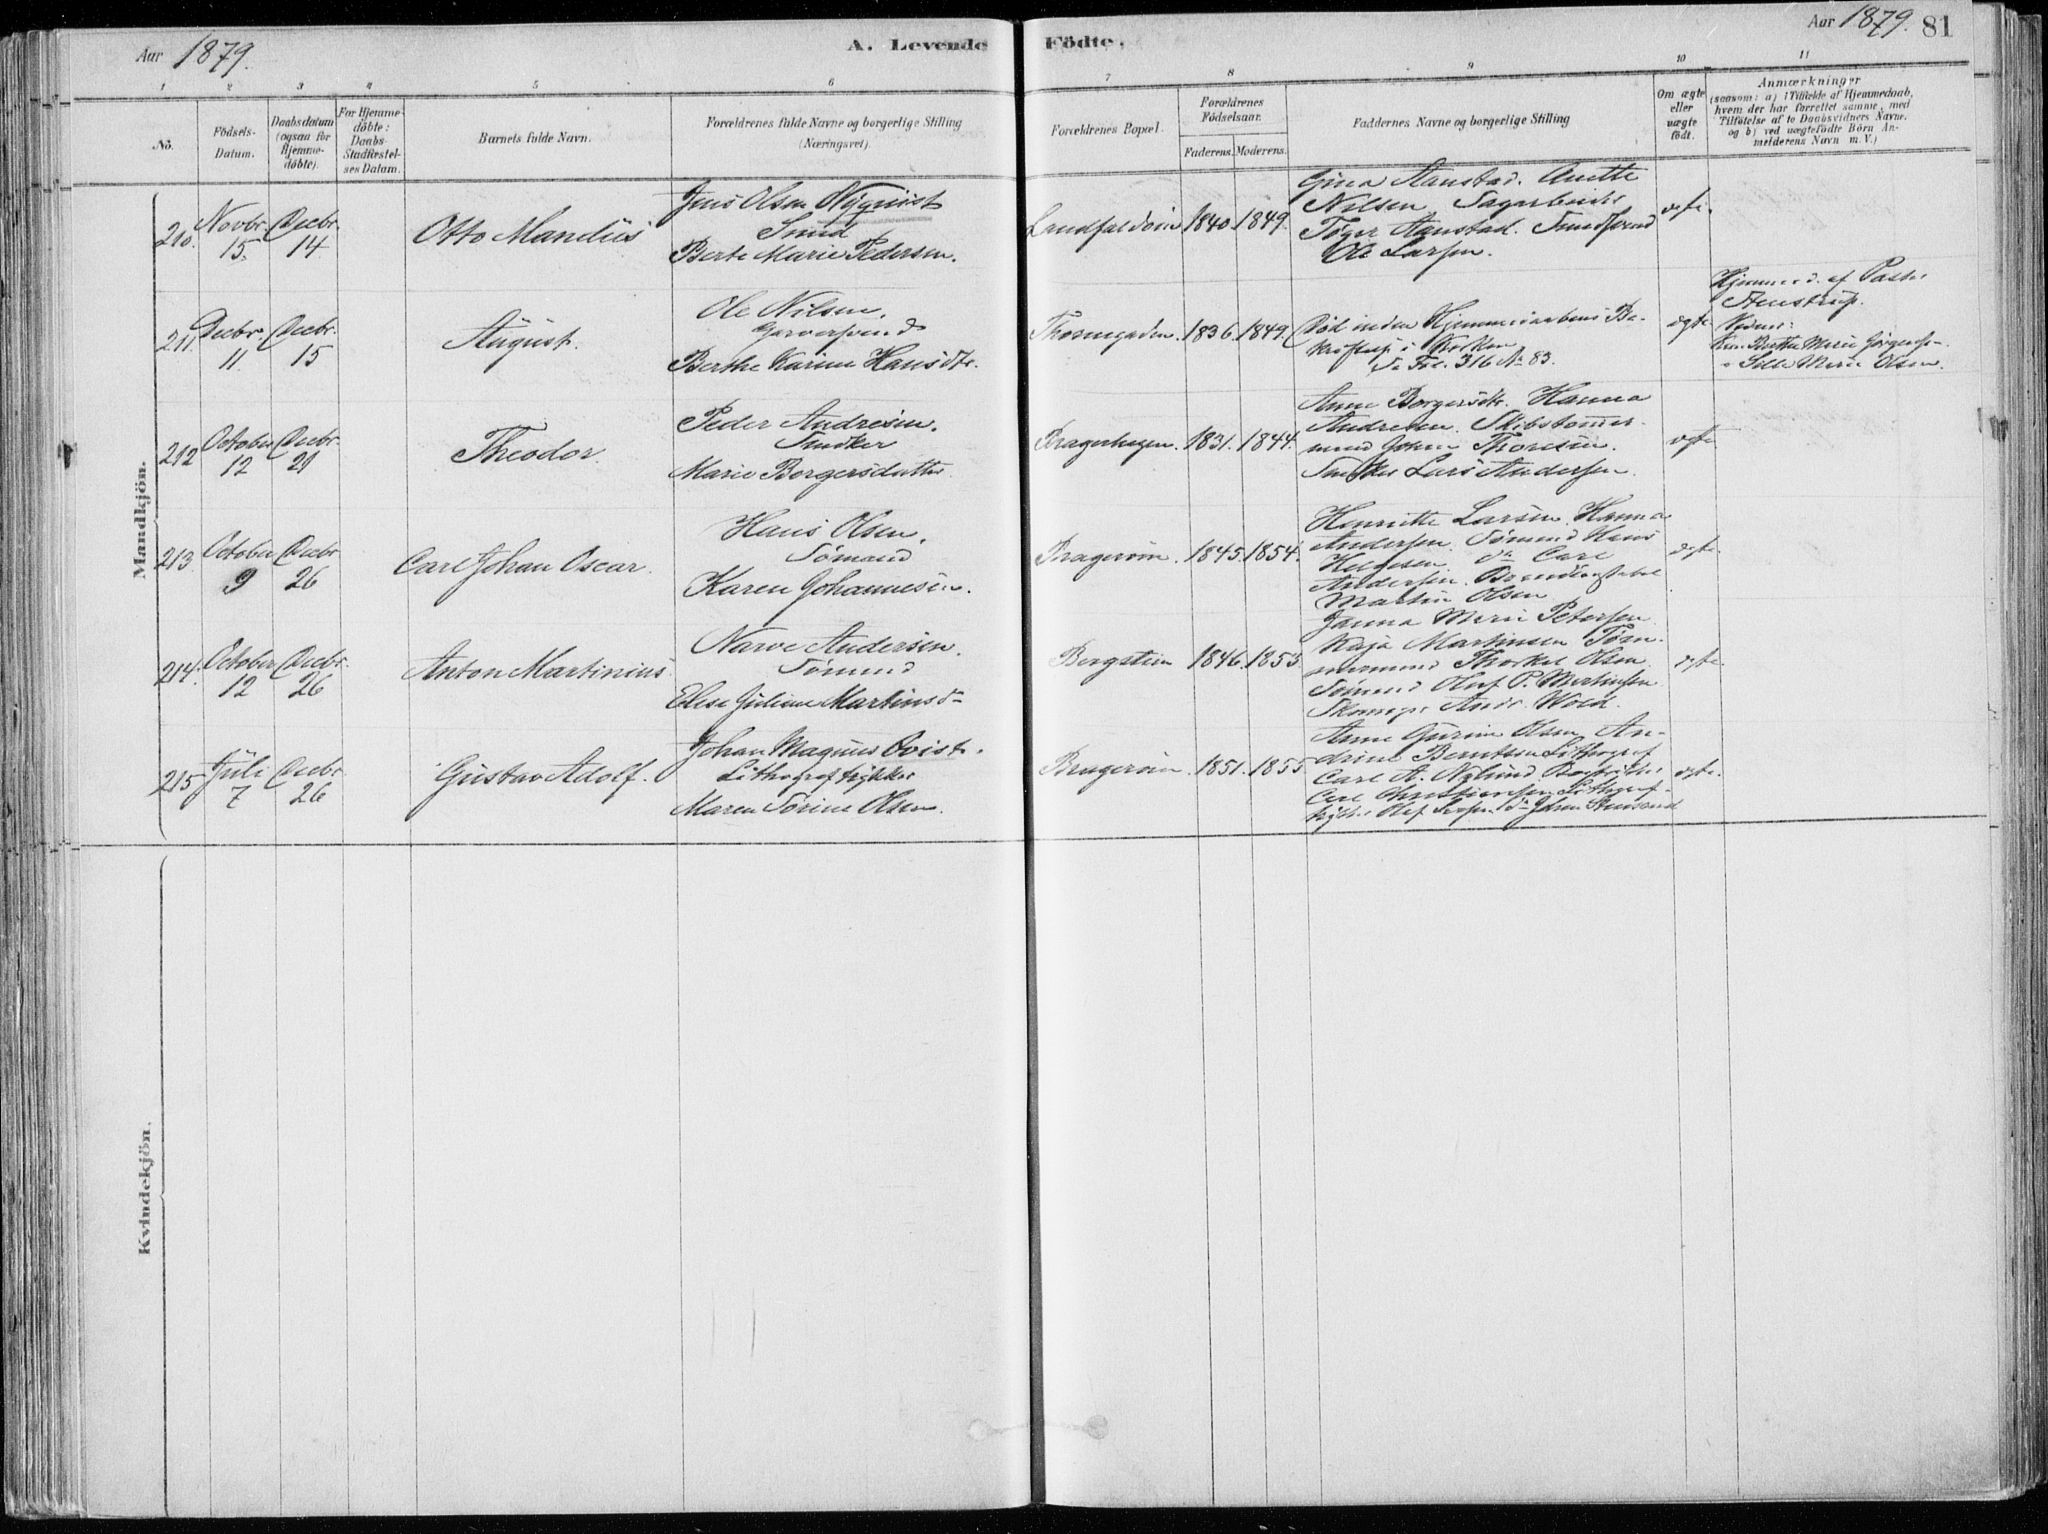 Aar 1879.
A. Levende Födte.
Aar 1879. 81
1 2 3 4 5 6 7 8 9 10 11
No.
Födsels-
Datum.
Daabsdatum
(ogsaa for
Hjemme-
döbte).
For Hjemme-
döbte:
Daabs-
Stadfæstel-
ses Datum.
Barnets fulde Navn.
Forældrenes fulde Navne og borgerlige Stilling
(Næringsvei).
Forældrenes Bopæl.
Forældrenes
Födselsaar.
Faderens. Moderens.
Faddernes Navne og borgerlige Stilling
Om ægte
eller
uægte
født.
Anmærkninger
(saasom: a) i Tilfælde af Hjemmedaab,
hvem der har forrettet samme, med
Tilföielse af to Daabsvidners Navne,
og b) ved uægtefödte Börn An-
melderens Navn m. V.)
Mandkjön.
210. Novbr. 15. Decbr. 14
Otto Mandius
Jens Olsen Nyqvist
Smed
Berte Marie Pedersen.
Landfaldöen 1840. 1849.
Gina Aanstad. Anette
Nilsen
Aanstad.
Ole Larsen.
ægte.
211. Decbr. 11 Decbr. 15
August.
Ole Nilsen.
Garversvend
Berthe Karine Hansdtr.
Thornegaden. 1836. 1849.
Död inden Hjemmedaabens Be-
kræftelse i Kirken
Se Fol. 316 No 83.
ægte
Hjemmed. af Pastor
Stenstrup.
Kone Berthe Marie
Marie Olsen.
212 October 12 Decbr. 21
Theodor.
Peder Andresen.
Snedker
Marie Borgersdatter
Bragerhagen. 1831. 1844.
Anne Borgersdtr. Hanna
Andresen. Skibstömmer-
mand Johan Thoresen.
Snedker Lars Andersen.
ægte
213. October 9 Decbr. 26
Carl Johan Oscar.
Hans Olsen.
Sömand
Karen Johannesen.
Bragerøen. 1845. 1854.
Henriette Larsen. Hanna
Andersen. Sömand Hans
Helgesen. do Carl
Andersen.
Martin Olsen
ægte.
214. October 12 Decbr. 26
Anton Martinius
Narve Andersen.
Sömand
Elise Juliane Martinsd.
Bergstien 1846. 1853.
Janna Marie Petersen
Kaja Martinsen Töm-
mermand Thorkel Olsen
Sömand Oluf P. Martinsen
Skomager Andr. Wold.
ægte.
215 Juli 7 Decbr. 26
Gustav Adolf.
Johan Magnus Qvist.
Lithograftrykker
Maren Sörine Olsen.
Bragerøen 1851. 1855
Anne Gurine Olsen An-
drine Berntsen Lithograf
Carl A. Nylund
Carl Christiansen Lithograf-
trykker Olaf do Johan
ægte.
Kvindekjön.